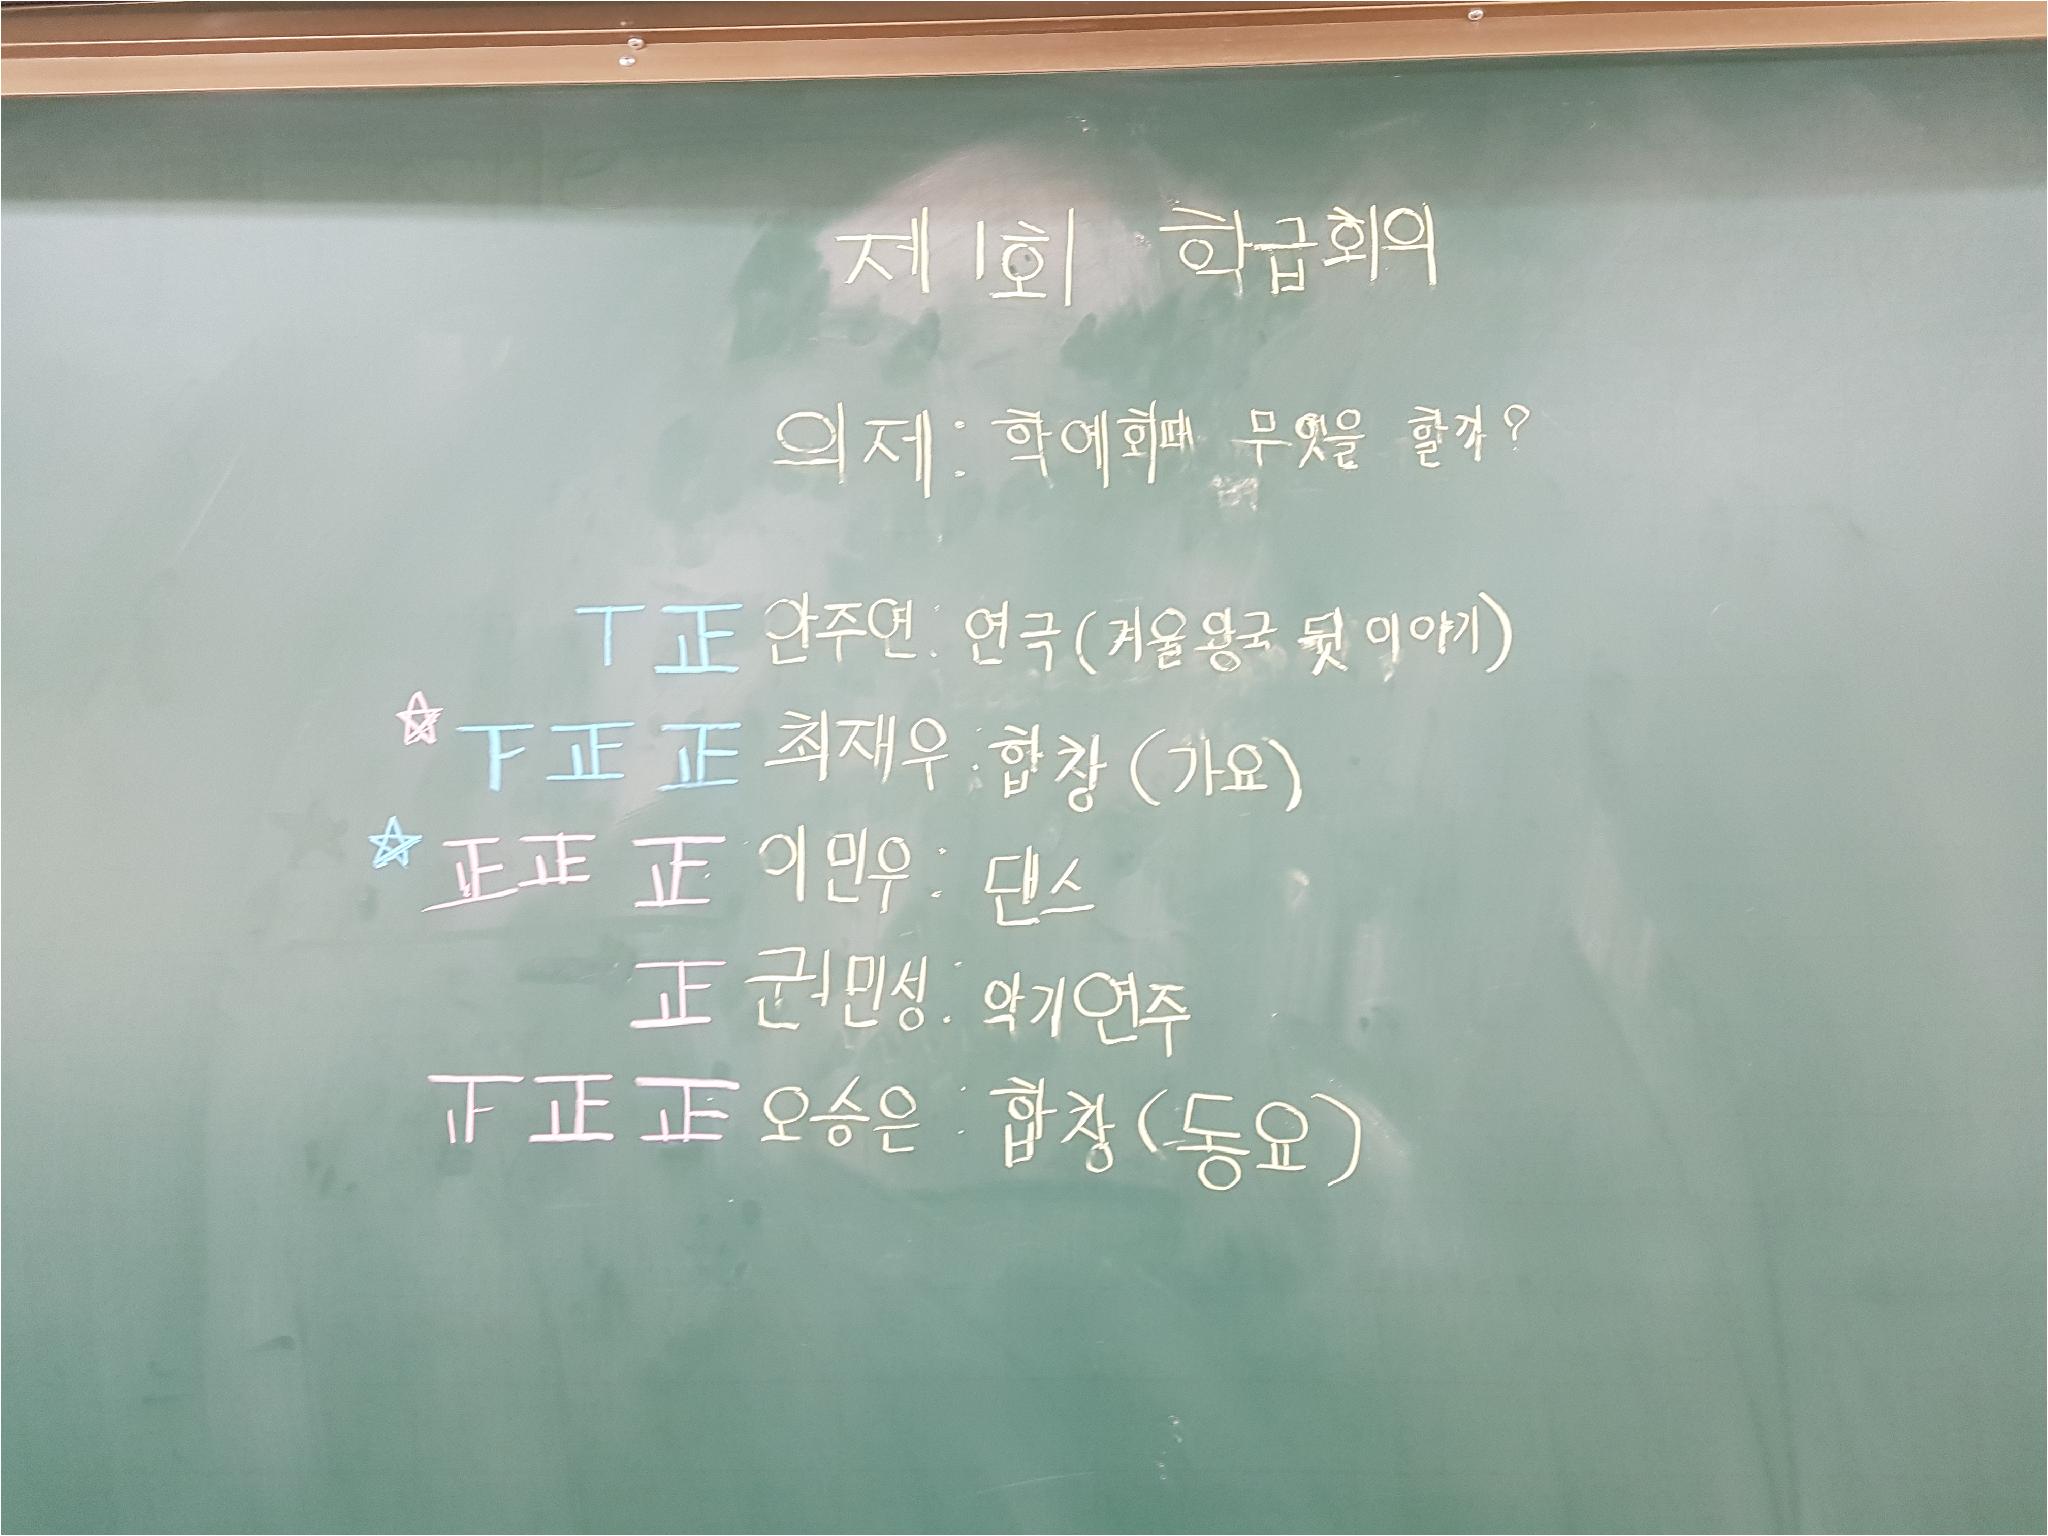 제 1회 학급회의
의제: 학예회때 무엇을 할까?
ㅜ 正 안주연: 연극 (겨울왕국 뒷 이야기)
☆ 下 正 正 최재우: 합창 (가요)
☆ 正 正 正 이민우: 댄스
正 권민성: 악기연주
正 正 오승은: 합창 (동요)